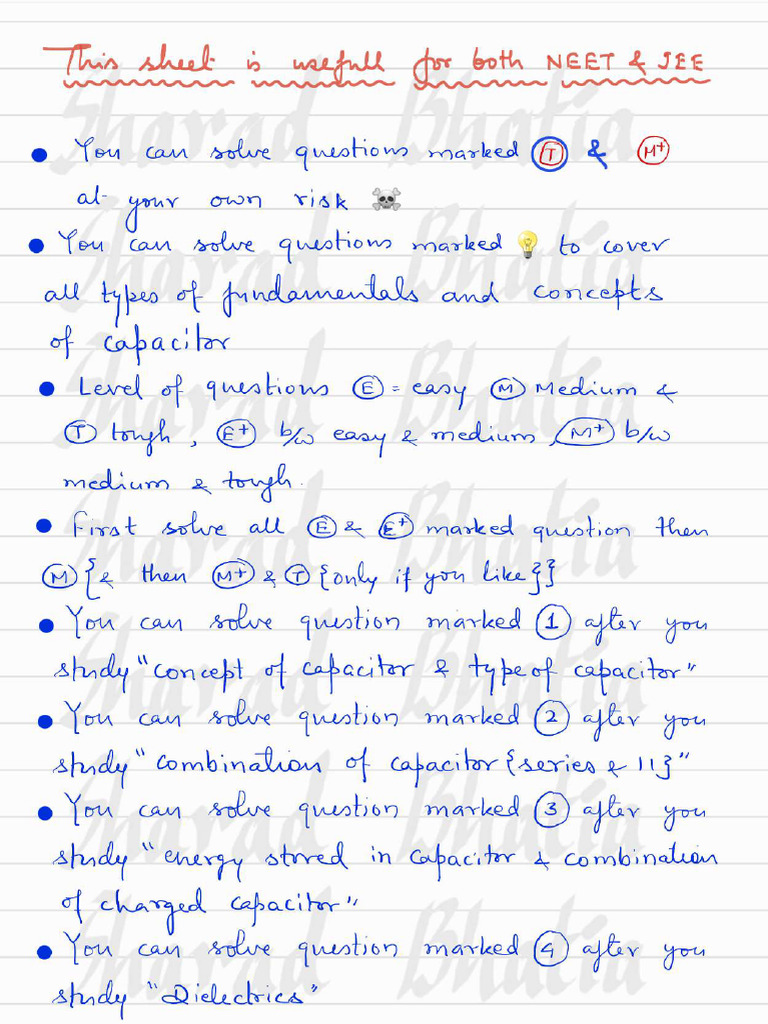 This sheet is usefull for both NEET & JEE
• You can solve questions marked Ⓣ & (M+)
at your own risk ☠️
• You can solve questions marked 💡 to cover
all types of fundamentals and concepts
of capacitor
• Level of questions Ⓔ = easy Ⓜ Medium &
Ⓣ tough, (E+) b/w easy & medium, (M+) b/w
medium & tough.
• First solve all Ⓔ & (E+) marked question then
Ⓜ {& then (M+) & Ⓣ {only if you like}}
• You can solve question marked ① after you
study "concept of capacitor & type of capacitor"
• You can solve question marked ② after you
study "combination of capacitor {series & 11}"
• You can solve question marked ③ after you
study "energy stored in capacitor & combination
of charged capacitor"
• You can solve question marked ④ after you
study "Dielectrics"
Sharad Bhatia
Sharad Bhatia
Sharad Bhatia
Sharad Bhatia
Sharad Bhatia
Sharad Bhatia
Sharad Bhatia